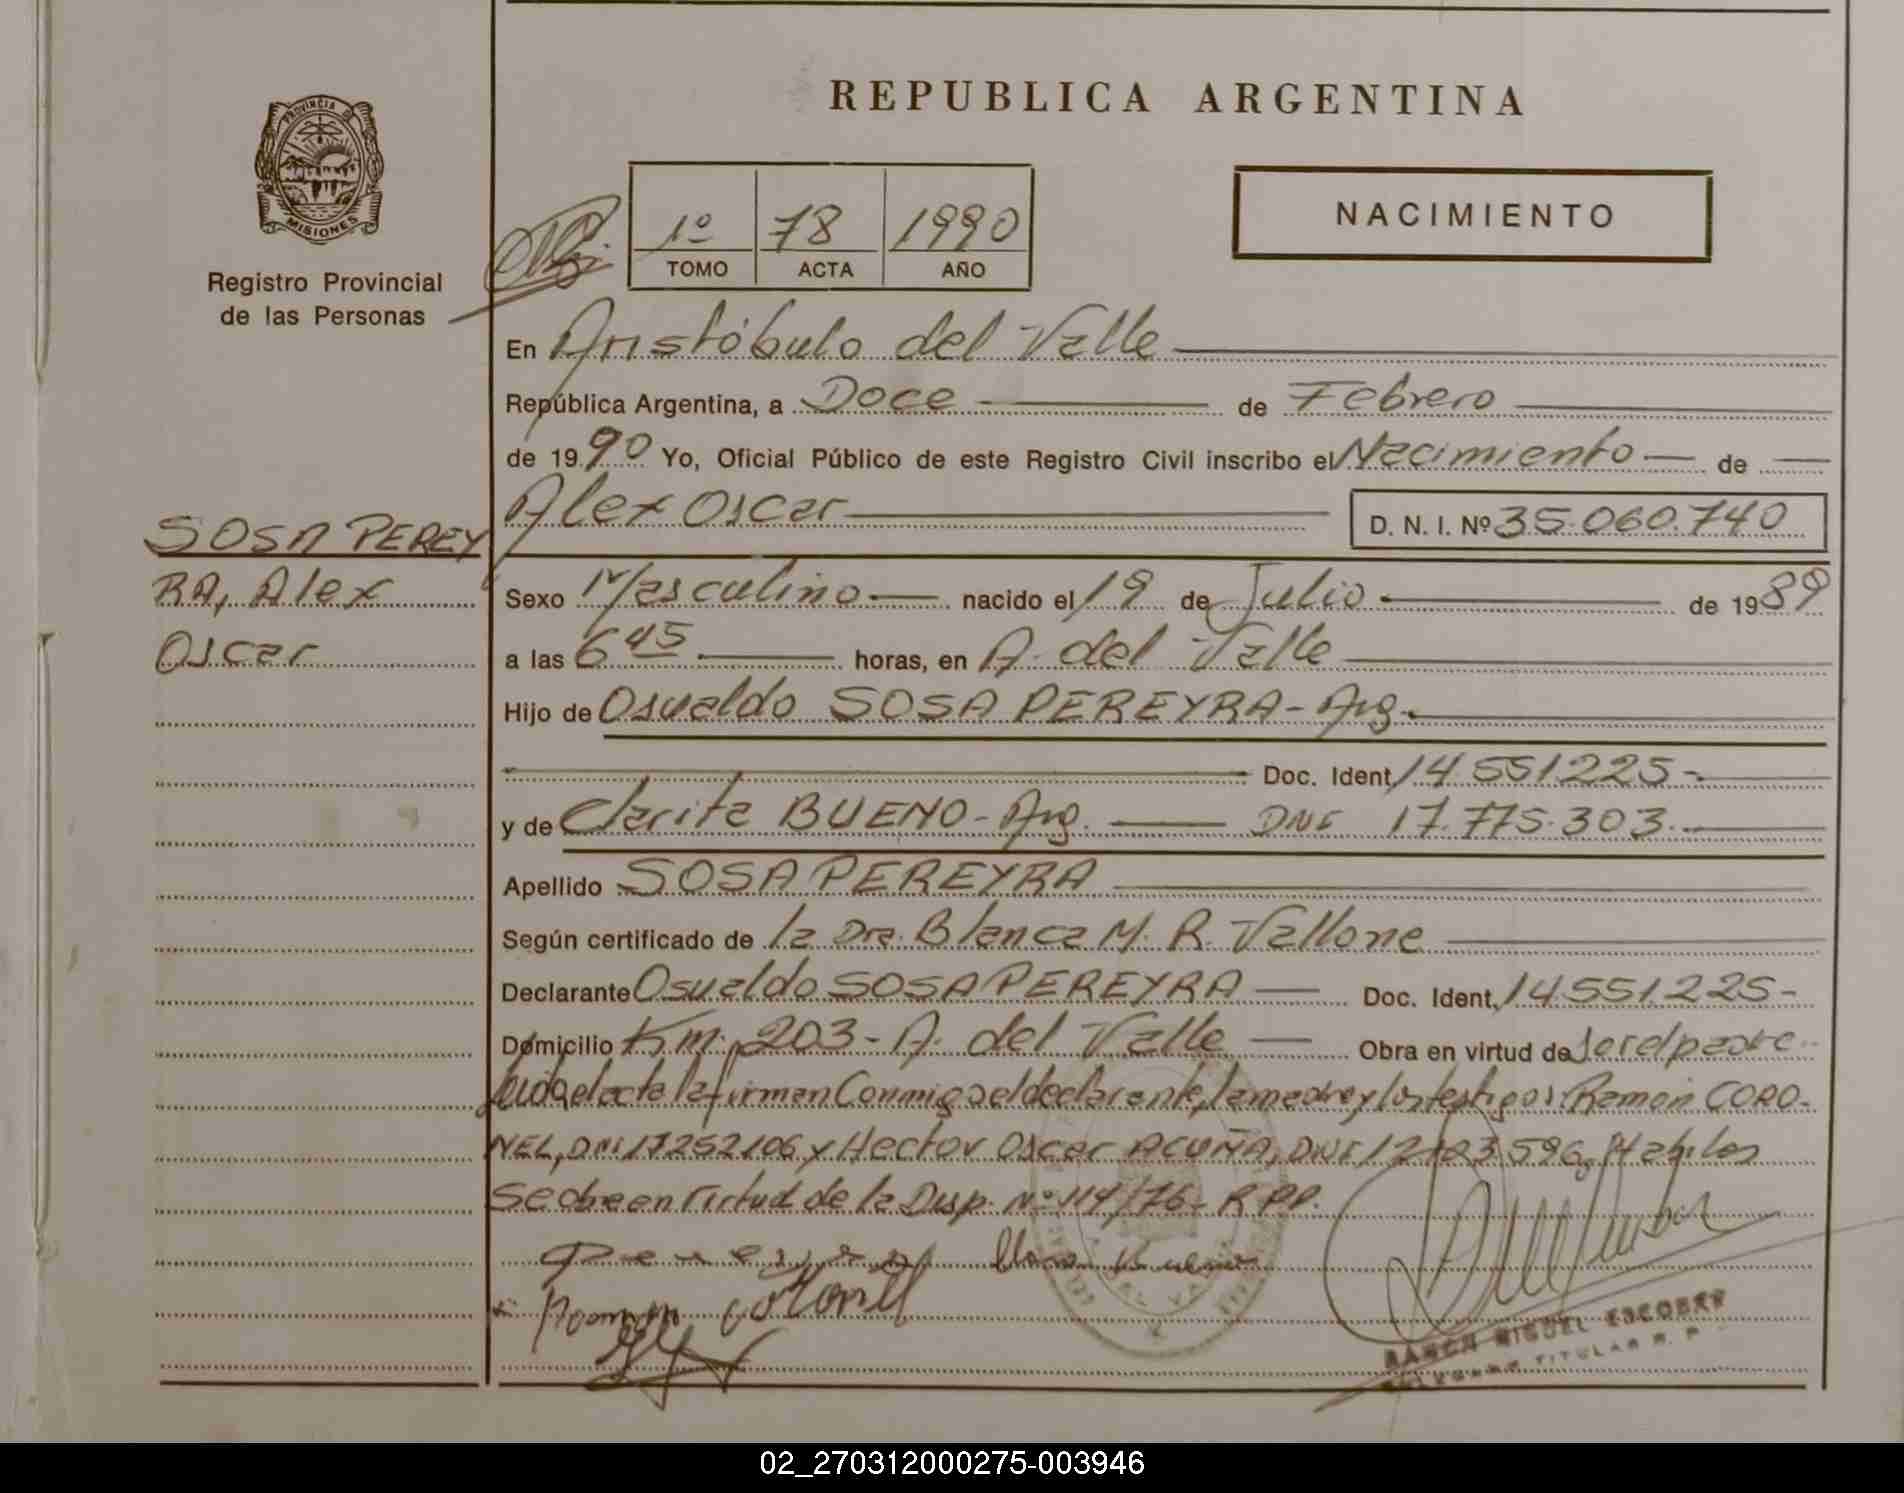 REPUBLICA ARGENTINA
PROVINCIA
MISIONES
Registro Provincial
de las Personas
1º 78 1990
TOMO ACTA AÑO
NACIMIENTO
En Aristóbulo del Valle
República Argentina, a Doce de Febrero
de 1990 Yo, Oficial Público de este Registro Civil inscribo el Nacimiento de
Alex Oscar D. N. I. Nº 35.060.740
SOSA PEREY
RA, Alex
Oscar
Sexo Masculino nacido el 19 de Julio de 1989
a las 6 45 horas, en A. del Valle
Hijo de Osvaldo SOSA PEREYRA - Arg.
Doc. Ident. 14.551.225-
y de Clarita BUENO - Arg. DNI 17.775.303.
Apellido SOSA PEREYRA
Según certificado de la Dra. Blanca M. R. Vallone
Declarante Osvaldo SOSA PEREYRA Doc. Ident. 14.551.225-
Domicilio Km. 203 - A. del Valle Obra en virtud de ser el padre
Leida el acta la firman Conmigo el declarante, la madre y los testigos: Ramón CORO-
NEL, DNI 17252106 y Hector Oscar ACUÑA, DNI Habiles
Se obra en Virtud de la Disp. Nº 114/76 - R.P.P.
Ramon
RAMON MIGUEL ESCOBAR
TITULAR R. P.
02_270312000275-003946